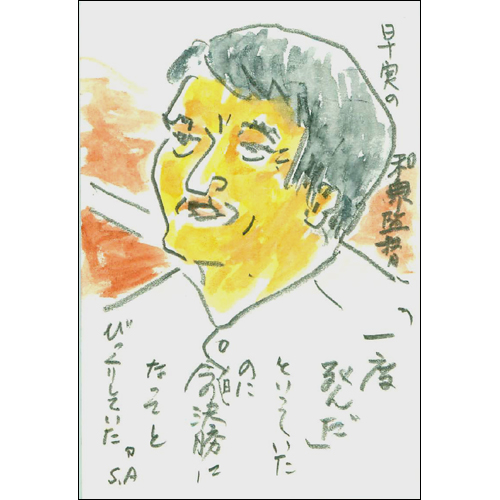 早実の
和泉監督
「一度
死んだ」
といっていた
のに
今日の決勝に
なってと
びっくりしていた。
S.A